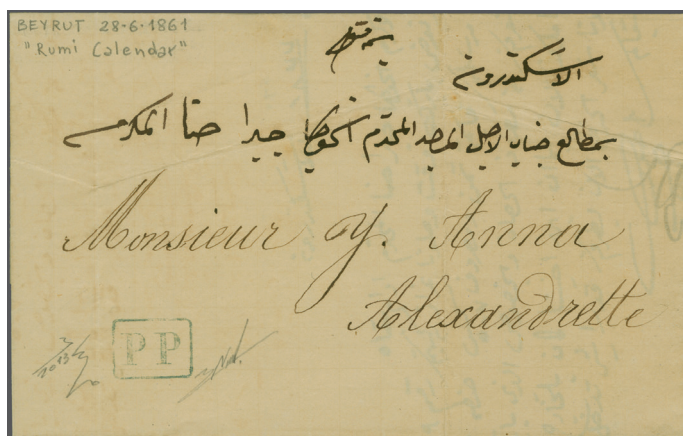 BEYRUT 28-6-1861
"Rumi Calendar"
الاسكندرونه
بمطالع جناب الاجل الامجد المحترم الخواجا جبرا حنا المكرم
Monsieur J. Anna
Alexandrette
PP